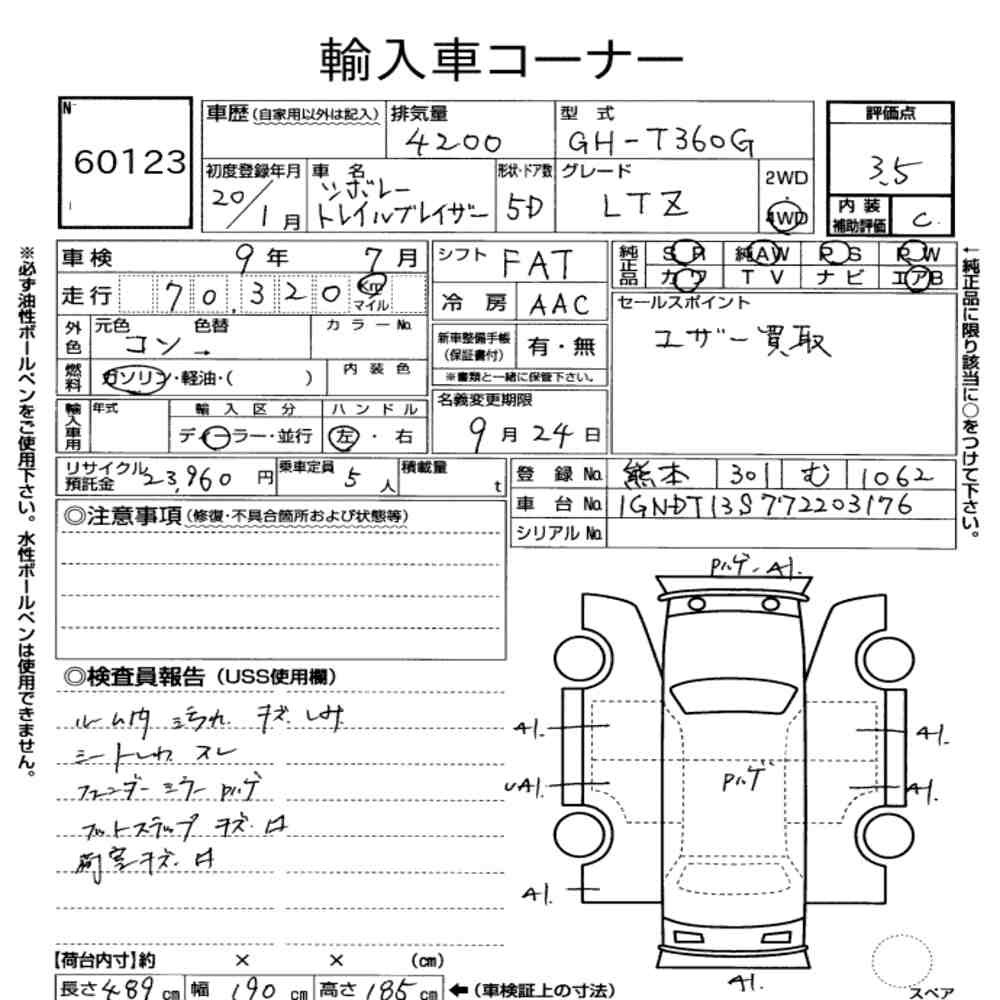 輸入車コーナー
№
60123
車歴 (自家用以外は記入)
排気量
4200
型式
GH-T360G
評価点
3.5
初度登録年月
20/1月
車名
シボレー
トレイルブレイザー
形状・ドア数
5D
グレード
LTZ
2WD
・
4WD
内装
補助評価
C
車検 9年 7月
走行 70,320 Km
マイル
外色
元色 色替
コン→
カラーNo.
燃料
ガソリン・軽油・( )
内装色
輸入車用
年式
輸入区分
ディーラー・並行
ハンドル
左・右
シフト FAT
冷房 AAC
新車整備手帳
(保証書付)
有・無
※書類と一緒に保管下さい。
名義変更期限
9月24日
純正品
SR 純AW PS PW
カワ TV ナビ エアB
セールスポイント
ユーザー買取
←純正品に限り該当に○をつけて下さい。
リサイクル
預託金
23,960円
乗車定員
5人
積載量
t
登録No. 熊本 301 む 1062
車台No. 1GNDT13S772203176
シリアルNo.
※必ず油性ボールペンをご使用下さい。水性ボールペンは使用できません。
◎注意事項 (修復・不具合箇所および状態等)
◎検査員報告 (USS使用欄)
ルーム内 ヨゴレ キズ
シート スレ
フェンダーミラー Pハゲ
フットステップ キズ
荷室キズ
Pハゲ・A1.
A1.
A1.
Pハゲ
UA1.
A1.
A1.
A1.
スペア
【荷台内寸】約 × × (cm)
長さ489cm 幅190cm 高さ185cm ←(車検証上の寸法)